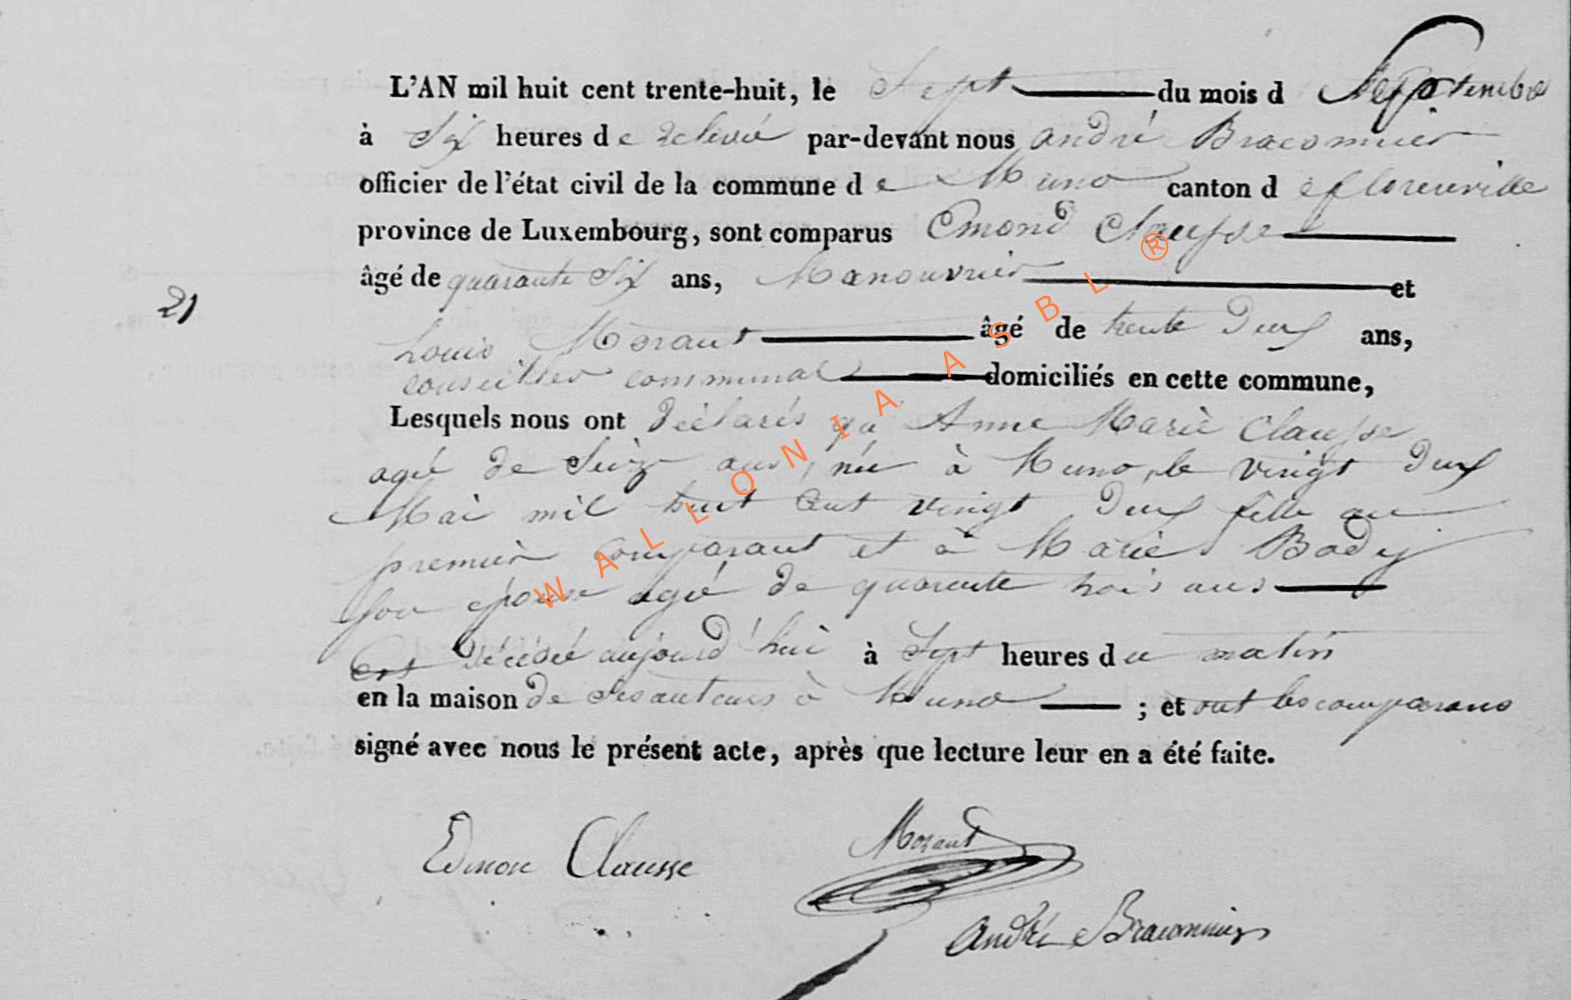 L'AN mil huit cent trente-huit, le Sept du mois d Septembre
à Six heures de relevé par-devant nous andré Braconnier
officier de l'état civil de la commune de Muno canton de florenville
province de Luxembourg, sont comparus Emond Clausse
âgé de quarante Six ans, Manouvrier et
21
Louis Moraut âgé de trente Deux ans,
conseiller communal domiciliés en cette commune,
Lesquels nous ont Déclarés qu'Anne Marie Clausse
agé de Seize ans, née à Muno, le vingt Deux
Mai mil huit Cent vingt Deux fille au
premier comparant et à Marie Body
Son épouse agé de quarente trois ans
Est Décédé aujourd'hui à Sept heures du matin
en la maison de Ses auteurs à Muno ; et ont les comparans
signé avec nous le présent acte, après que lecture leur en a été faite.
Edmon Clausse
Moraut
André Braconnier
WALLONIA ASBL ®